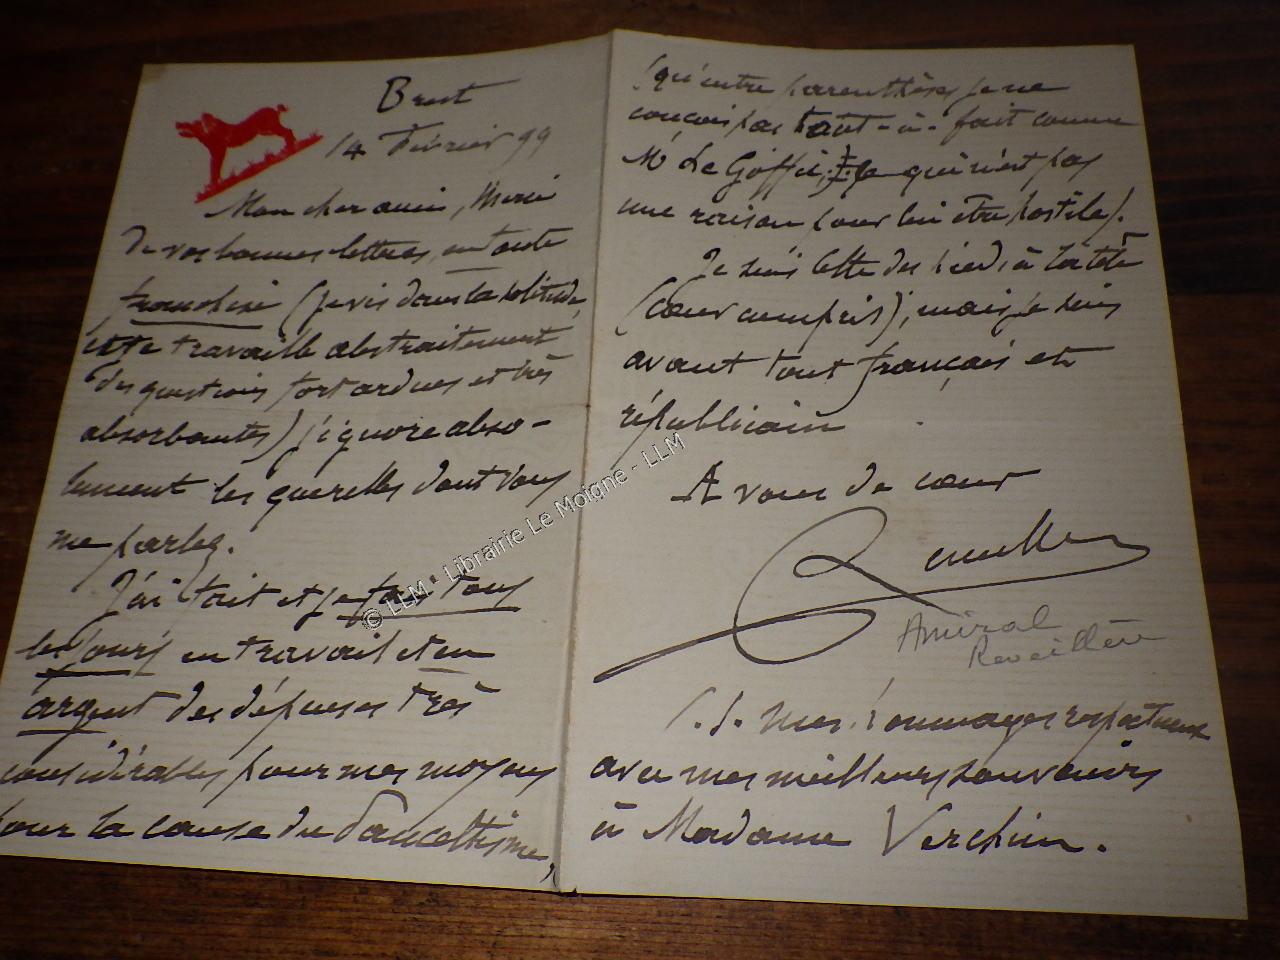 Brest
14 Février 99
Mon cher ami, Merci
de vos bonnes lettres, en toute
franchise (je vis dans la solitude,
et je travaille abstraitement
des questions fort ardues et très
absorbantes) j'ignore abso-
lument les querelles dont vous
me parlez.
J'ai fait et je fais tous
les jours en travail et en
argent des dépenses très
considérables pour mes moyens
pour la cause du Panceltisme,
(qu'entre parenthèses je ne
conçois pas tout-à-fait comme
Mr Le Goffic, ce qui n'est pas
une raison pour lui être hostile).
Je suis celte des pieds à la tête
(cœur compris), mais je suis
avant tout français et
républicain
A vous de cœur
Reveillère
Amiral
Reveillère
P.S. mes hommages respectueux
avec mes meilleurs souvenirs
à Madame Verchin.
© LLM - Librairie Le Moigne - LLM